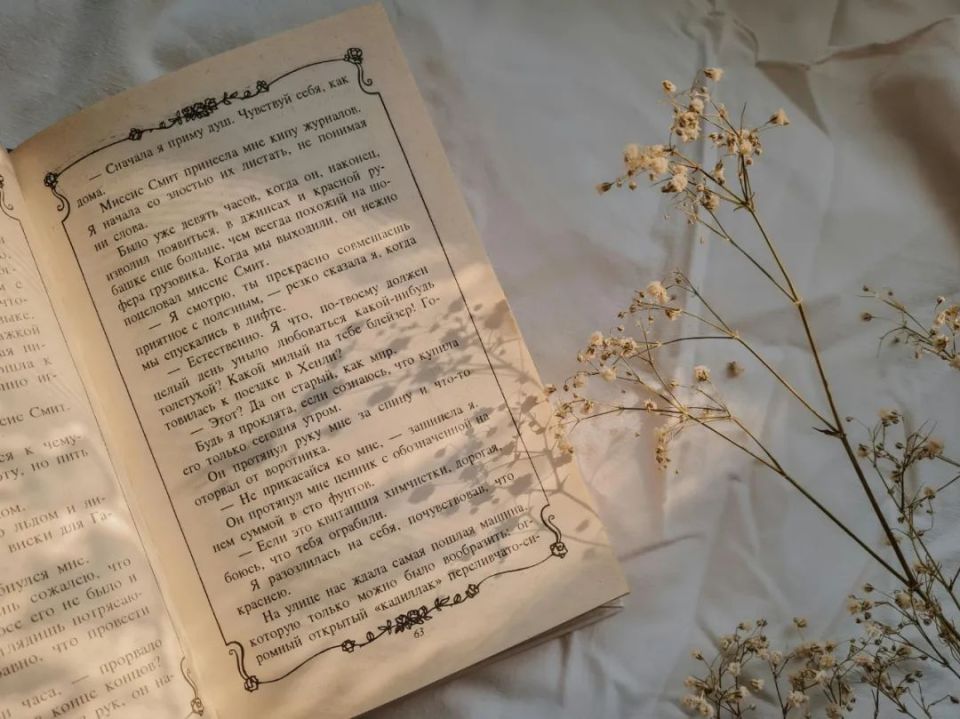 что-
ыке.
ажкой
ришла к
сис Смит.
ся к чему-
оту, но пить
дом.
льдом и ли-
виски для Га-
бнулся мне.
ень сожалею, что
осее его не было и
глядишь потрясаю-
равно, что провести
и часа, — прорвало
в конце концов?
рук, он на-
— Сначала я приму душ. Чувствуй себя, как
дома.
Миссис Смит принесла мне кипу журналов.
Я начала со злостью их листать, не понимая
ни слова.
Было уже девять часов, когда он, наконец,
изволил появиться, в джинсах и красной ру-
башке еще больше, чем всегда похожий на шо-
фера грузовика. Когда мы выходили, он нежно
поцеловал миссис Смит.
— Я смотрю, ты прекрасно совмещаешь
приятное с полезным, — резко сказала я, когда
мы спускались в лифте.
— Естественно. Я что, по-твоему должен
целый день уныло любоваться какой-нибудь
толстухой? Какой милый на тебе блейзер! Го-
товилась к поездке в Хенли?
— Этот? Да он старый, как мир.
Будь я проклята, если сознаюсь, что купила
его только сегодня утром.
Он протянул руку мне за спину и что-то
оторвал от воротника.
— Не прикасайся ко мне, — зашипела я.
Он протянул мне ценник с обозначенной на
нем суммой в сто фунтов.
— Если это квитанция химчистки, дорогая,
боюсь, что тебя ограбили.
Я разозлилась на себя, почувствовав, что
краснею.
На улице нас ждала самая пошлая машина,
которую только можно было вообразить: ог-
ромный открытый «кадиллак» переливчато-си-
63